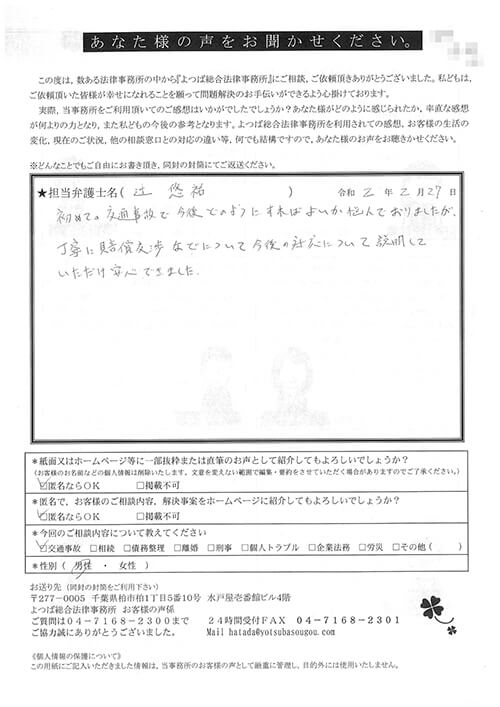 あなた様の声をお聞かせください。
この度は，数ある法律事務所の中から『よつば総合法律事務所』にご相談，ご依頼頂きありがとうございました。私どもは，
ご依頼頂いた皆様が幸せになれることを願って問題解決のお手伝いができるよう心掛けております。
実際，当事務所をご利用頂いてのご感想はいかがでしたでしょうか？あなた様がどのように感じられたか，率直な感想
が何よりの力となり，また私どもの今後の参考となります。よつば総合法律事務所を利用されての感想，お客様の生活の
変化，現在のご状況，他の相談窓口との対応の違い等，何でも結構ですので，あなた様のお声をお聴きかせください。
※どんなことでもご自由にお書き頂き，同封の封筒にてご返送ください。
★担当弁護士名（ 辻 悠祐 ） 令和 2 年 2 月 27 日
初めての交通事故で今後どのようにすればよいか悩んでおりましたが、
丁寧に賠償交渉などについて今後の対応について説明して
いただけ安心できました.
＊紙面又はホームページ等に一部抜粋または直筆のお声として紹介してもよろしいでしょうか？
（お客様のお名前などの個人情報は削除いたします。文意を変えない範囲で編集・要約をさせていただく場合がありますのでご了承ください。）
☑匿名ならOK □掲載不可
＊匿名で，お客様のご相談内容，解決事案をホームページに紹介してもよろしいでしょうか？
☑匿名ならOK □掲載不可
＊今回のご相談内容について教えてください
☑交通事故 □相続 □債務整理 □離婚 □刑事 □個人トラブル □企業法務 □労災 □その他（ ）
＊性別（ 男性 ・ 女性 ）
お送り先（同封の封筒をご利用下さい）
〒277-0005 千葉県柏市柏1丁目5番10号 水戸屋壱番館ビル4階
よつば総合法律事務所 お客様の声係
ご質問は04-7168-2300まで 24時間受付FAX 04-7168-2301
ご協力誠にありがとうございました。 Mail hatada@yotsubasougou.com
《個人情報の保護について》
この用紙にご記入いただきました情報は，当事務所のお客様の声として厳重に管理し，目的外には使用いたしません。